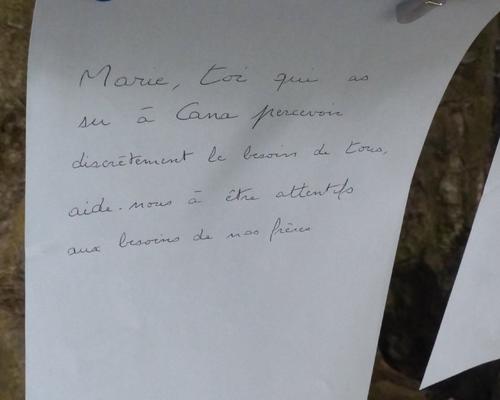 Marie, toi qui as
su à Cana percevoir
discrètement le besoin de tous,
aide-nous à être attentifs
aux besoins de nos frères